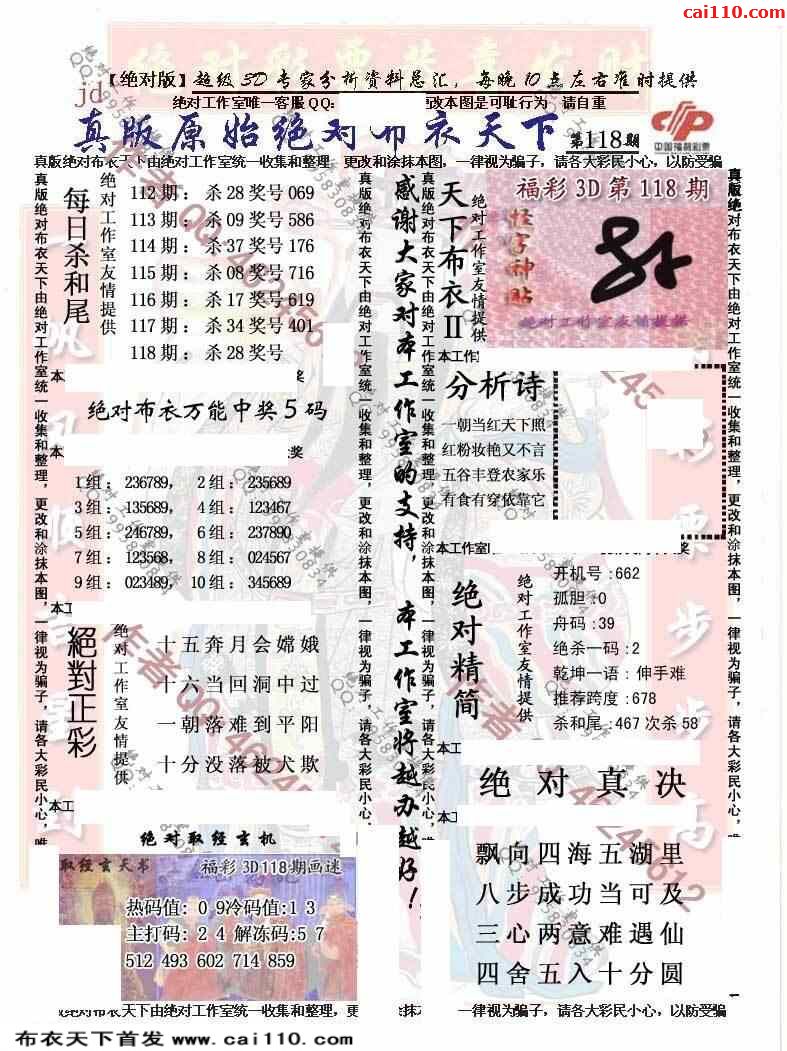 cai110.com
【绝对版】超级3D专家分析资料总汇，每晚10点左右准时提供
jd
绝对工作室唯一客服QQ:
改本图是可耻行为 请自重
真版原始绝对布衣天下
第118期
中国福利彩票
真版绝对布衣天下由绝对工作室统一收集和整理 更改和涂抹本图，一律视为骗子，请各大彩民小心，以防受骗
真版绝对布衣天下由绝对工作室统一收集和整理，更改和涂抹本图，一律视为骗子，请各大彩民小心，唯
每日杀和尾
绝对工作室友情提供
112期：杀28奖号069
113期：杀09奖号586
114期：杀37奖号176
115期：杀08奖号716
116期：杀17奖号619
117期：杀34奖号401
118期：杀28奖号
本
奖
绝对布衣万能中奖5码
本
奖
1组：236789， 2组：235689
3组：135689， 4组：123467
5组：246789， 6组：237890
7组：123568， 8组：024567
9组：023489， 10组：345689
本工
絕對正彩
绝对工作室友情提供
十五奔月会嫦娥
十六当回洞中过
一朝落难到平阳
十分没落被犬欺
本工
绝对取经玄机
取经玄天书
福彩3D118期画迷
热码值：0 9冷码值:1 3
主打码：2 4 解冻码:5 7
512 493 602 714 859
真版绝对布衣天下由绝对工作室统一收集和整理，更改和涂抹本图，一律视为骗子，请各大彩民小心，
感谢大家对本工作室的支持，本工作室将越办越好！
真版绝对布衣天下由绝对工作室统一收集和整理，更改和涂抹本图，一律视为骗子，请各大彩民小心，唯
天下布衣II
绝对工作室友情提供
福彩3D第118期
怪字神贴
绝对工作室友情提供
本工作
分析诗
一朝当红天下照
红粉妆艳又不言
五谷丰登农家乐
有食有穿依靠它
本工作室
奖
绝对精简
绝对工作室友情提供
开机号:662
孤胆:0
舟码:39
绝杀一码:2
乾坤一语：伸手难
推荐跨度:678
杀和尾:467次杀58
本工
绝对真决
本工
飘向四海五湖里
八步成功当可及
三心两意难遇仙
四舍五入十分圆
真版绝对布衣天下由绝对工作室统一收集和整理，更改和涂抹本图，一律视为骗子，请各大彩民小心，唯
版绝对布衣天下由绝对工作室统一收集和整理，更
涂抹本
一律视为骗子，请各大彩民小心，以防受骗
布衣天下首发 www.cai110.com